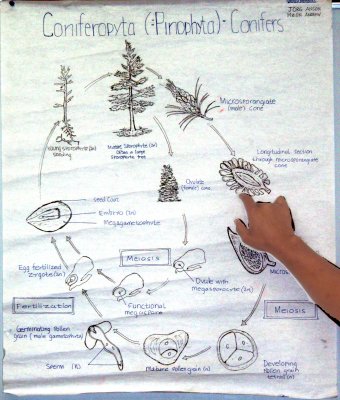 Coniferopyta (=Pinophyta)- Conifers
Young sporophyte (2n)
seedling
Mature Sporophyte (2n)
often a large
Sporophyte tree
Microsporangiate
(male) cone
Longitudinal section
through microsporangiate
cone
Ovulate
(female) cone
Seed Coat
Embryo (2n)
Megagametophyte
Meiosis
Egg fertilized
zygote (2n)
Functional
megaspore
Ovule with
megasporocyte (2n)
Fertilization
Meiosis
Germinating Pollen
grain (male gametophyte)
Sperm (n)
Mature Pollen grain (n)
Developing
Pollen grain
tetrad (n)